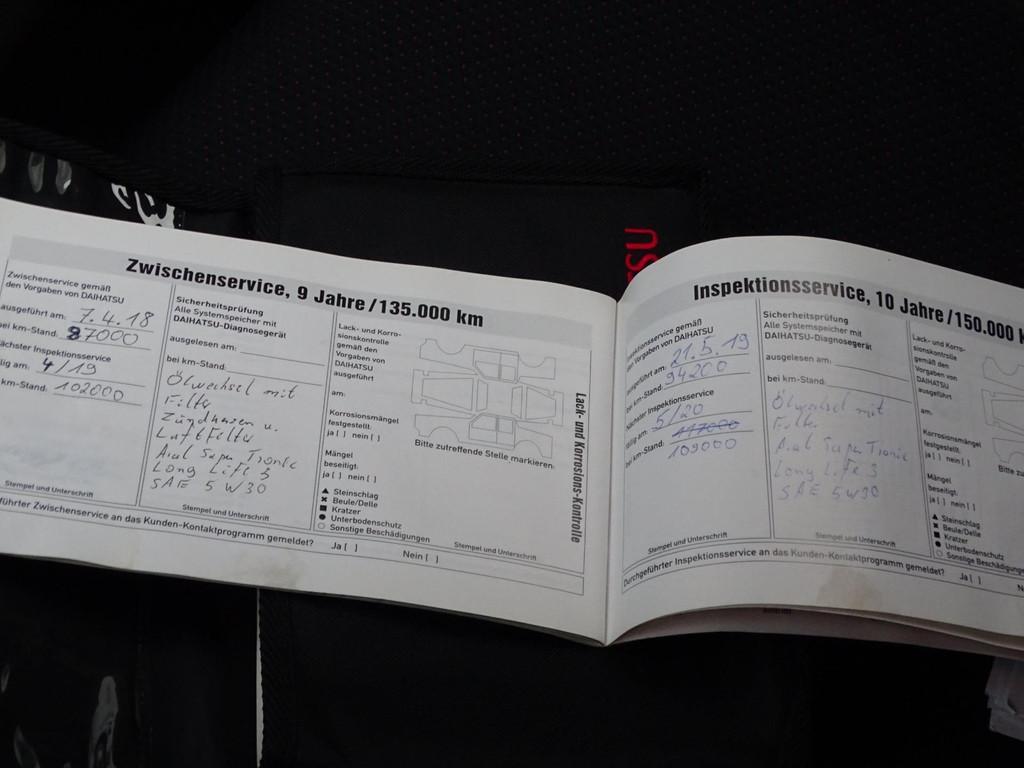 USTSU
Zwischenservice, 9 Jahre/135.000 km
Zwischenservice gemäß
den Vorgaben von DAIHATSU
ausgeführt am: 7.4.18
bei km-Stand: 87000
nächster Inspektionsservice
fällig am: 4/19
km-Stand: 102000
Stempel und Unterschrift
Sicherheitsprüfung
Alle Systemspeicher mit
DAIHATSU-Diagnosegerät
ausgelesen am:
bei km-Stand:
Ölwechsel mit
Filter
Zündkerzen u.
Luftfilter
Aral Super Tronic
Long Life 3
SAE 5W30
Stempel und Unterschrift
Lack- und Korro-
sionskontrolle
gemäß den
Vorgaben von
DAIHATSU
ausgeführt
am:
Korrosionsmängel
festgestellt:
ja [ ] nein [ ]
Mängel
beseitigt:
ja [ ] nein [ ]
▲ Steinschlag
✖ Beule/Delle
■ Kratzer
● Unterbodenschutz
○ Sonstige Beschädigungen
Bitte zutreffende Stelle markieren.
Stempel und Unterschrift
Lack- und Korrosions-Kontrolle
führter Zwischenservice an das Kunden-Kontaktprogramm gemeldet? Ja [ ] Nein [ ]
Inspektionsservice, 10 Jahre/150.000 k
Inspektionsservice gemäß
den Vorgaben von DAIHATSU
ausgeführt am: 21.5.19
bei km-Stand: 94200
Nächster Inspektionsservice
fällig am: 5/20
bei km-Stand: 109000
Stempel und Unterschrift
Sicherheitsprüfung
Alle Systemspeicher mit
DAIHATSU-Diagnosegerät
ausgelesen am:
bei km-Stand:
Ölwechsel mit
Filter
Aral Super Tronic
Long Life 3
SAE 5W30
Stempel und Unterschrift
Lack- und Korro-
sionskontrolle
gemäß den
Vorgaben von
DAIHATSU
ausgeführt
am:
Korrosionsmängel
festgestellt:
ja [ ] nein [ ]
Mängel
beseitigt:
ja [ ] nein [ ]
▲ Steinschlag
✖ Beule/Delle
■ Kratzer
● Unterbodenschutz
○ Sonstige Beschädigung
Bitte zu
Durchgeführter Inspektionsservice an das Kunden-Kontaktprogramm gemeldet? Ja [ ] N